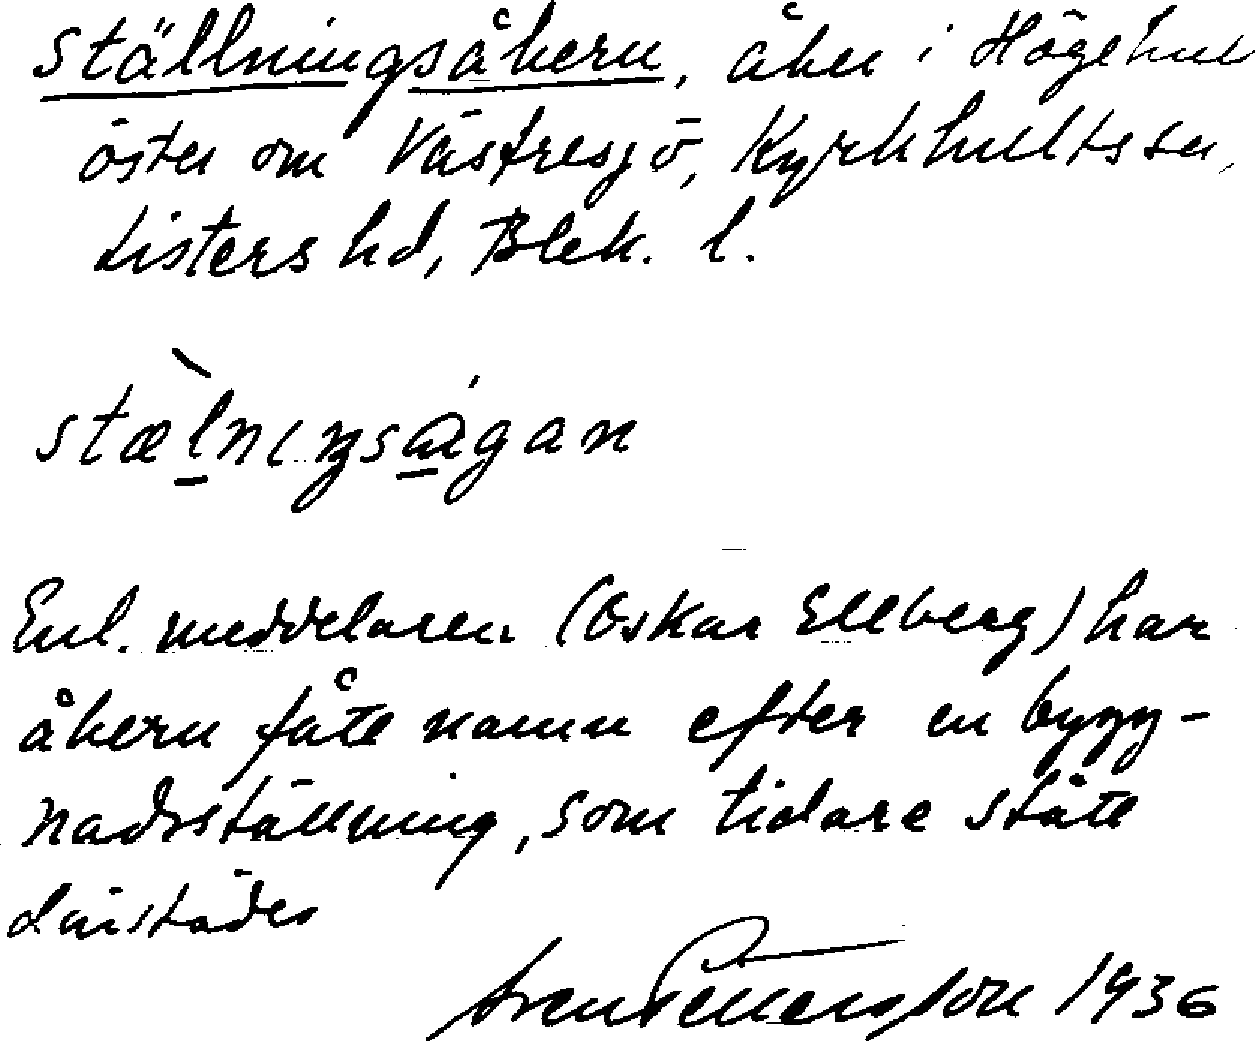 Ställningsåkern, åker i Högehult
öster om Västresjö, Kyrkhults sn,
Listers hd, Blek. l.
stæ̀lniŋsågan
Enl. meddelaren (Oskar Ellberg) har
åkern fåte namn efter en bygg-
nadsställning, som tidare ståte
därstädes
Sven Pettersson 1936